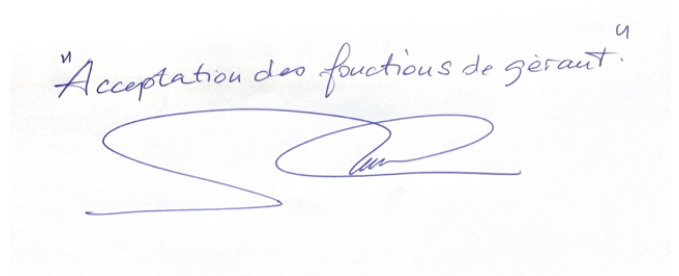 "Acceptation des fonctions de gérant."